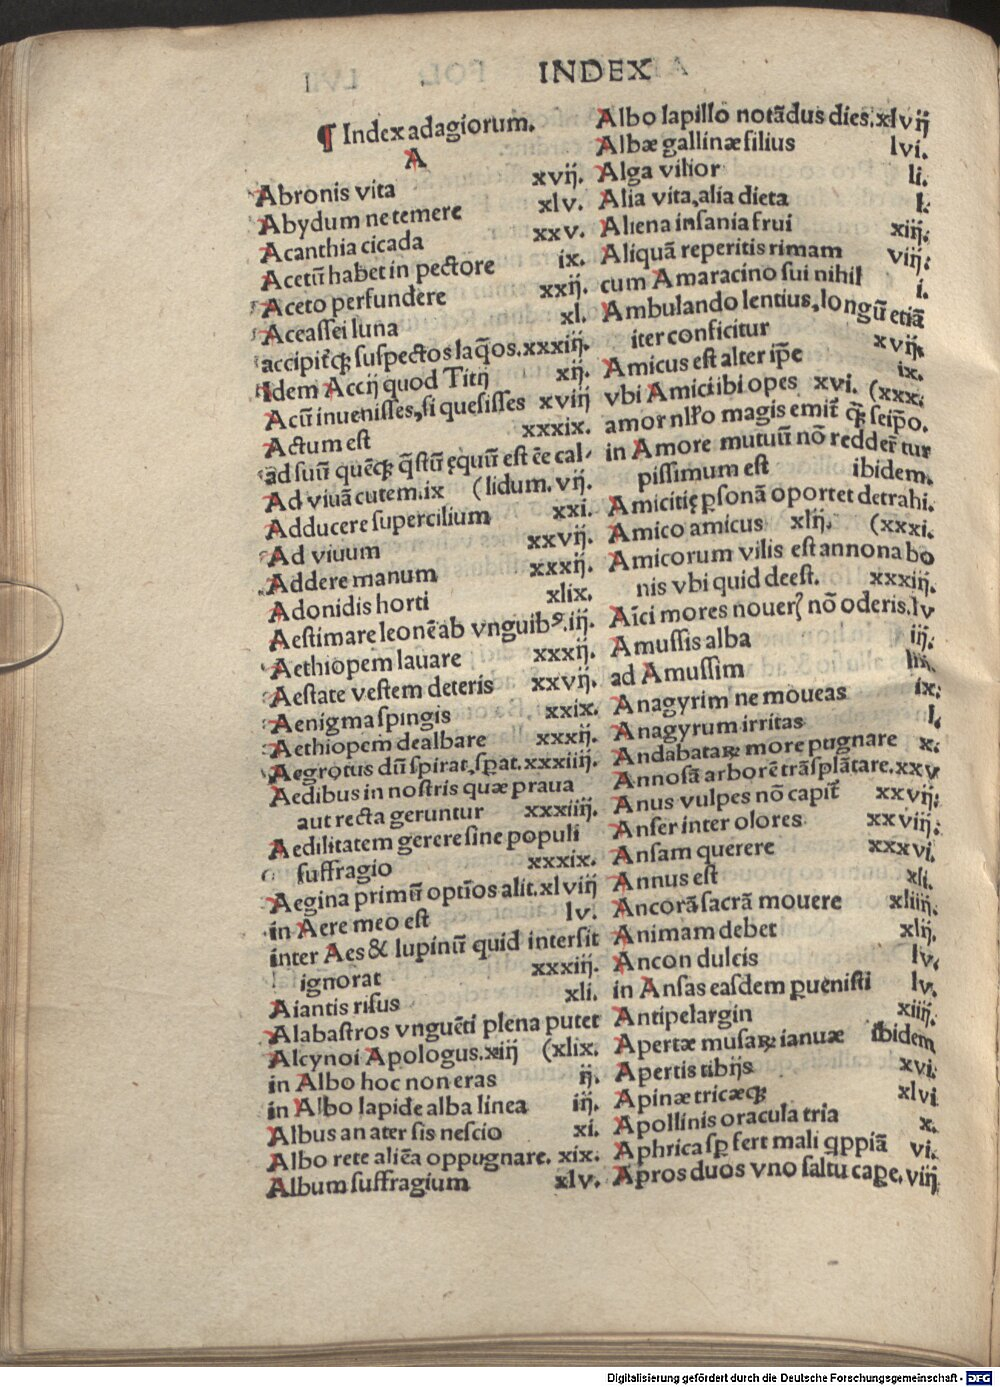 INDEX
¶ Index adagiorum.
A
Abronis vita xvij.
Abydum ne temere xlv.
Acanthia cicada xxv.
Acetū habet in pectore ix.
Aceto perfundere xxij.
Aceassei luna xl.
accipitr̃q; suspectos laq̃os. xxxiij.
Idem Accij quod Titij xij.
Acū inuenisses, si quesisses xviij
Actum est xxxix.
ad suū quēq; q̃stū ęquū est ēe cal-
Ad viuā cutem. ix (lidum. vij.
Adducere supercilium xxi.
Ad viuum xxvij.
Addere manum xxxij.
Adonidis horti xlix.
Aestimare leonē ab vnguibꝰ. iij.
Aethiopem lauare xxxij.
Aestate vestem deteris xxvij.
Aenigma spingis xxix.
Aethiopem dealbare xxxij.
Aegrotus dū spirat, sperat. xxxiiij.
Aedibus in nostris quæ praua
aut recta geruntur xxxiiij.
Aedilitatem gerere sine populi
suffragio xxxix.
Aegina primū optīos alit. xlviij
in Aere meo est lv.
inter Aes & lupinū quid intersit
ignorat xxxiij.
Aiantis risus xli.
Alabastros vnguēti plena putet
Alcynoi Apologus. xiij (xlix.
in Albo hoc non eras ij.
in Albo lapide alba linea iij.
Albus an ater sis nescio xi.
Albo rete aliēa oppugnare. xix.
Album suffragium xlv.
Albo lapillo notādus dies. xlvij
Albæ gallinæ filius lvi.
Alga vilior li.
Alia vita, alia dieta l.
Aliena insania frui xiij.
Aliquā reperitis rimam viij.
cum Amaracino sui nihil i.
Ambulando lentius, longū etiā
iter conficitur xvij.
Amicus est alter ip̄e ix.
vbi Amici ibi opes xvi. (xxx.
amor nr̄o magis emit̄ q̃; seip̄o.
in Amore mutuū nō redder̄ tur
pissimum est ibidem.
Amicitię ꝑsonā oportet detrahi.
Amico amicus xlij. (xxxi.
Amicorum vilis est annona bo
nis vbi quid deest. xxxiij.
Aīci mores noueri͛ nō oderis. lv
Amussis alba iij.
ad Amussim
Anagyrim ne moueas ix.
Anagyrum irritas l.
Andabataꝝ more pugnare x.
Annosā arborē trāsplātare. xxv
Anus vulpes nō capit̄ xxvij.
Anser inter olores xxviij.
Ansam querere xxxvi.
Annus est xli.
Ancorā sacrā mouere xliij.
Animam debet xlij.
Ancon dulcis lv.
in Ansas easdem ꝑuenisti lv.
Antipelargin xiiij.
Apertæ musaꝝ ianuæ ibidem
Apertis tibijs xvi.
Apinæ tricæq; xlvi
Apollinis oracula tria x.
Aphrica sꝑ fert mali qppiā vi.
Apros duos vno saltu caꝑe. viij
Digitalisierung gefördert durch die Deutsche Forschungsgemeinschaft - DFG